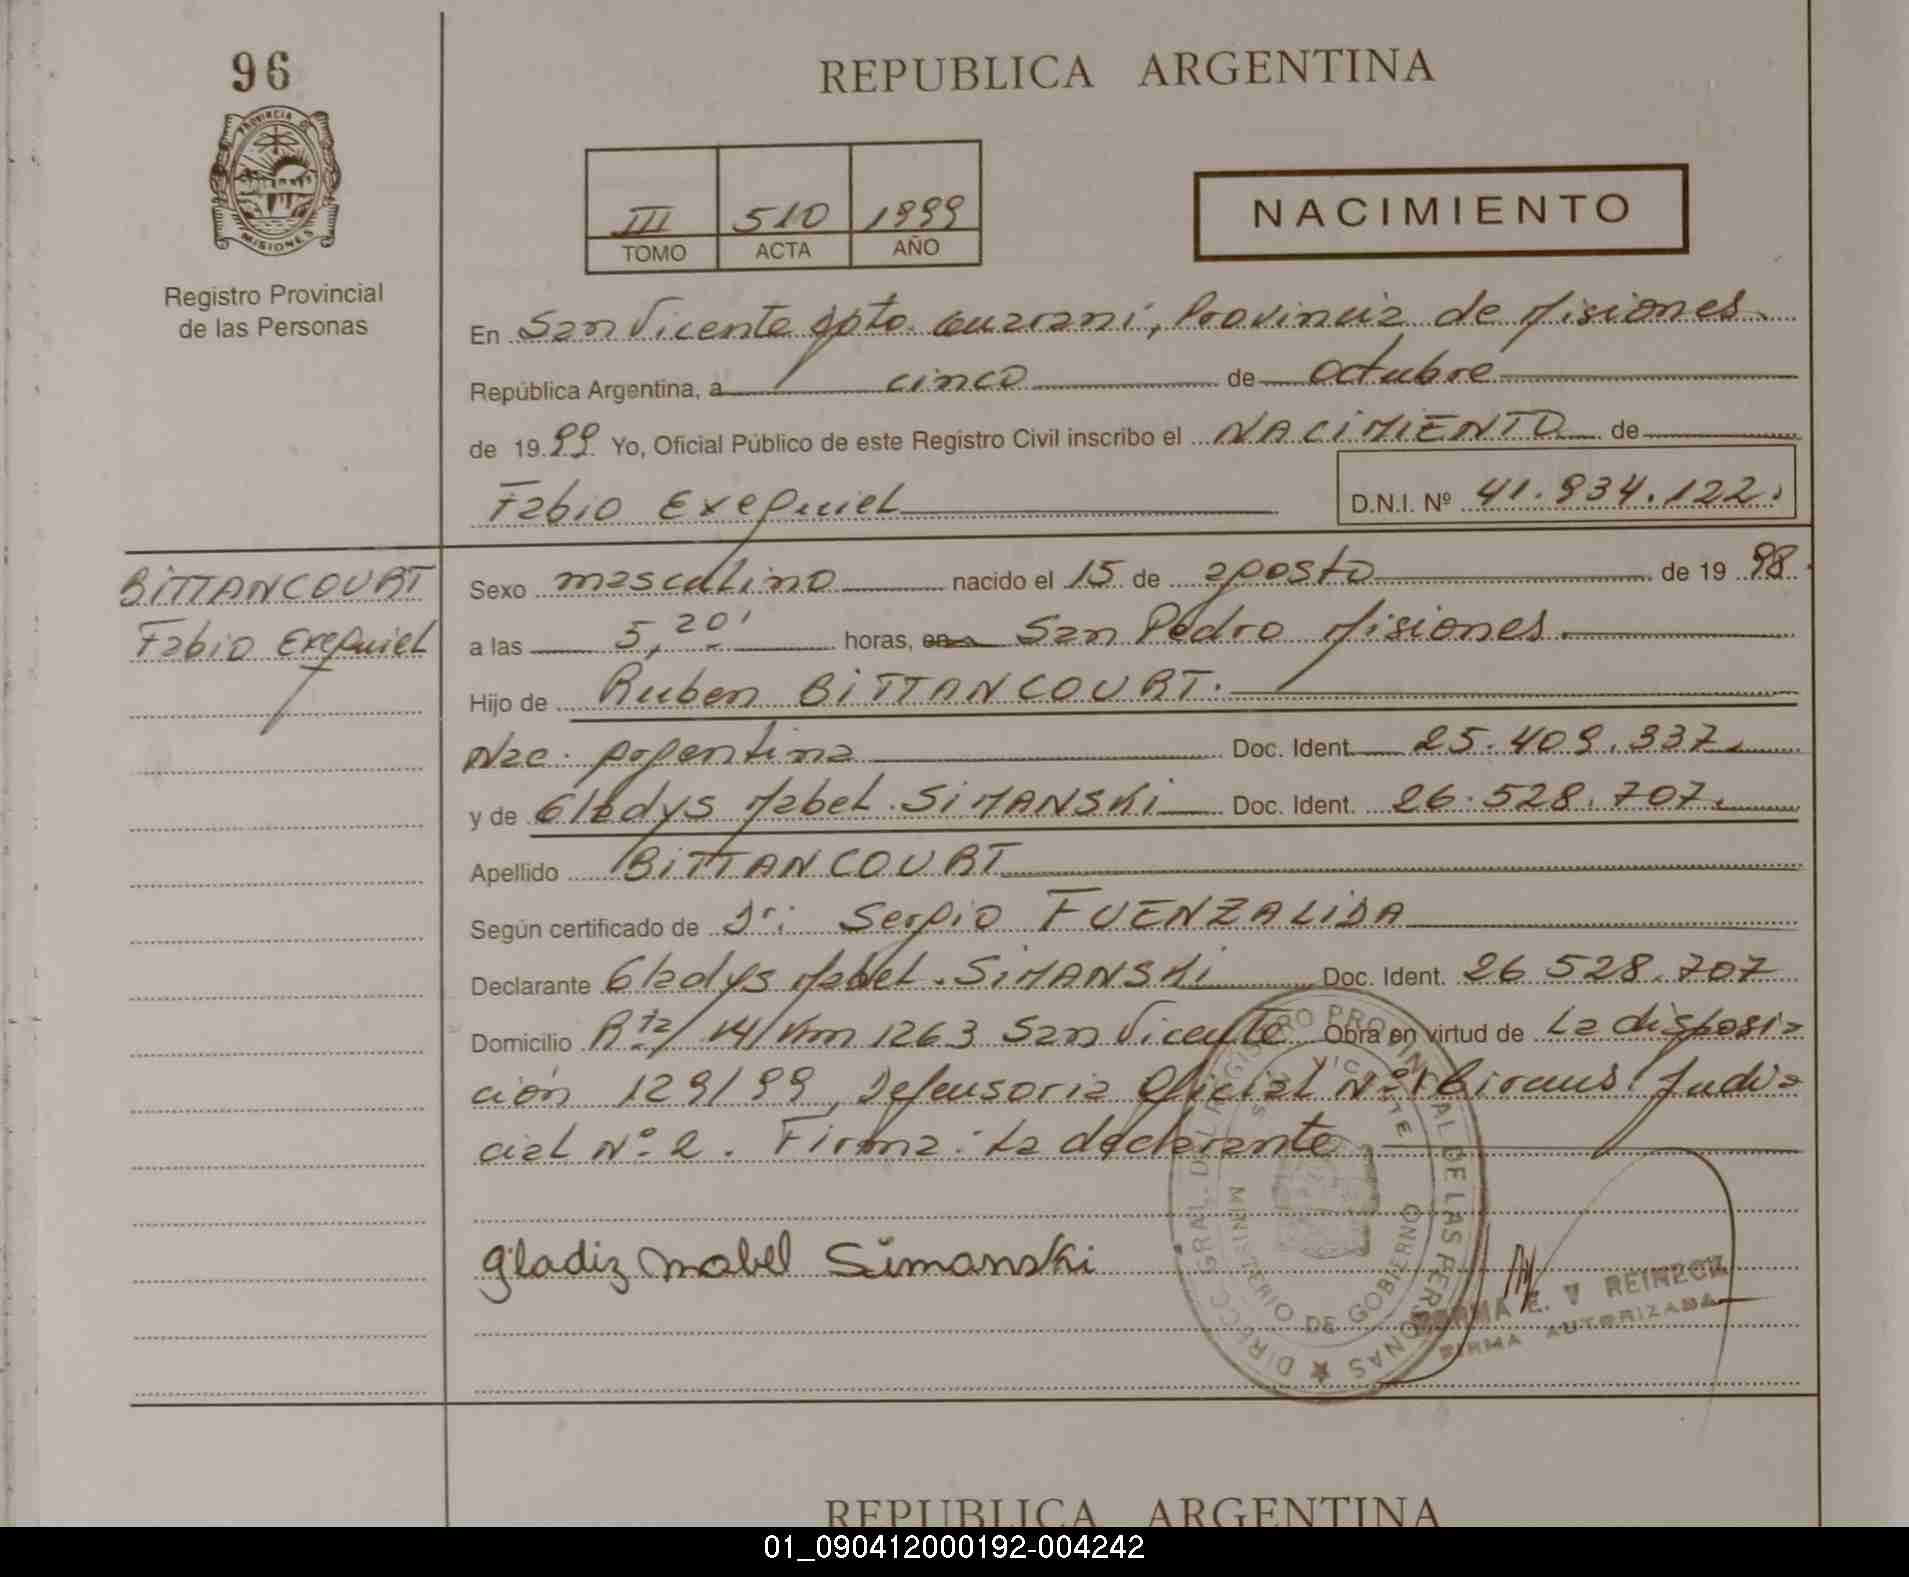 96
REPUBLICA ARGENTINA
PROVINCIA DE
MISIONES
Registro Provincial
de las Personas
III 510 1999
TOMO ACTA AÑO
NACIMIENTO
En San Vicente dpto. Guaraní, Provincia de Misiones
República Argentina, a cinco de octubre
de 1999 Yo, Oficial Público de este Registro Civil inscribo el NACIMIENTO de
Fabio Exequiel D.N.I. Nº 41.934.122.
BITTANCOURT
Fabio Exequiel
Sexo masculino nacido el 15 de agosto de 1998.
a las 5,20' horas, en San Pedro Misiones.
Hijo de Ruben BITTANCOURT.
Nac. Argentina Doc. Ident. 25.409.337.
y de Gladys Mabel SIMANSKI Doc. Ident. 26.528.707.
Apellido BITTANCOURT
Según certificado de Dr: Sergio FUENZALIDA
Declarante Gladys Mabel SIMANSKI Doc. Ident. 26 528.707
Domicilio Rta/ 14/ Km 1263 San Vicente Obra en virtud de La disposi=
ción 129/99, Defensoria Oficial Nº1 Circuns. Judi=
cial Nº 2. Firma: La declarante
gladiz mabel Simanski
DIRECC. GRAL. DEL REGISTRO PROVINCIAL DE LAS PERSONAS
MINISTERIO DE GOBIERNO
S. VICENTE
NORMA E. V REINECK
FIRMA AUTORIZADA
REPUBLICA ARGENTINA
01_090412000192-004242